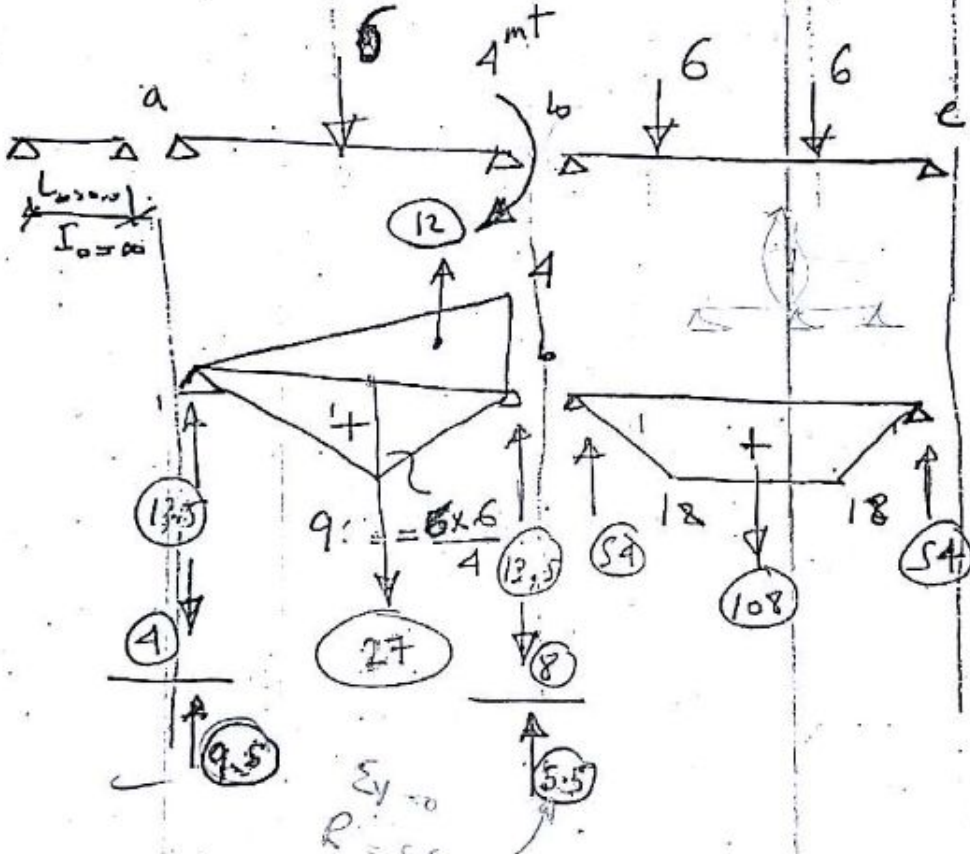 6
4 mt
6
6
a
b
c
L₀=0.0
I₀=∞
12
4
b
+
+
13.5
9 = 6×6/4
13.5
54
18
18
54
4
27
8
108
9.5
5.5
Σy=0
R